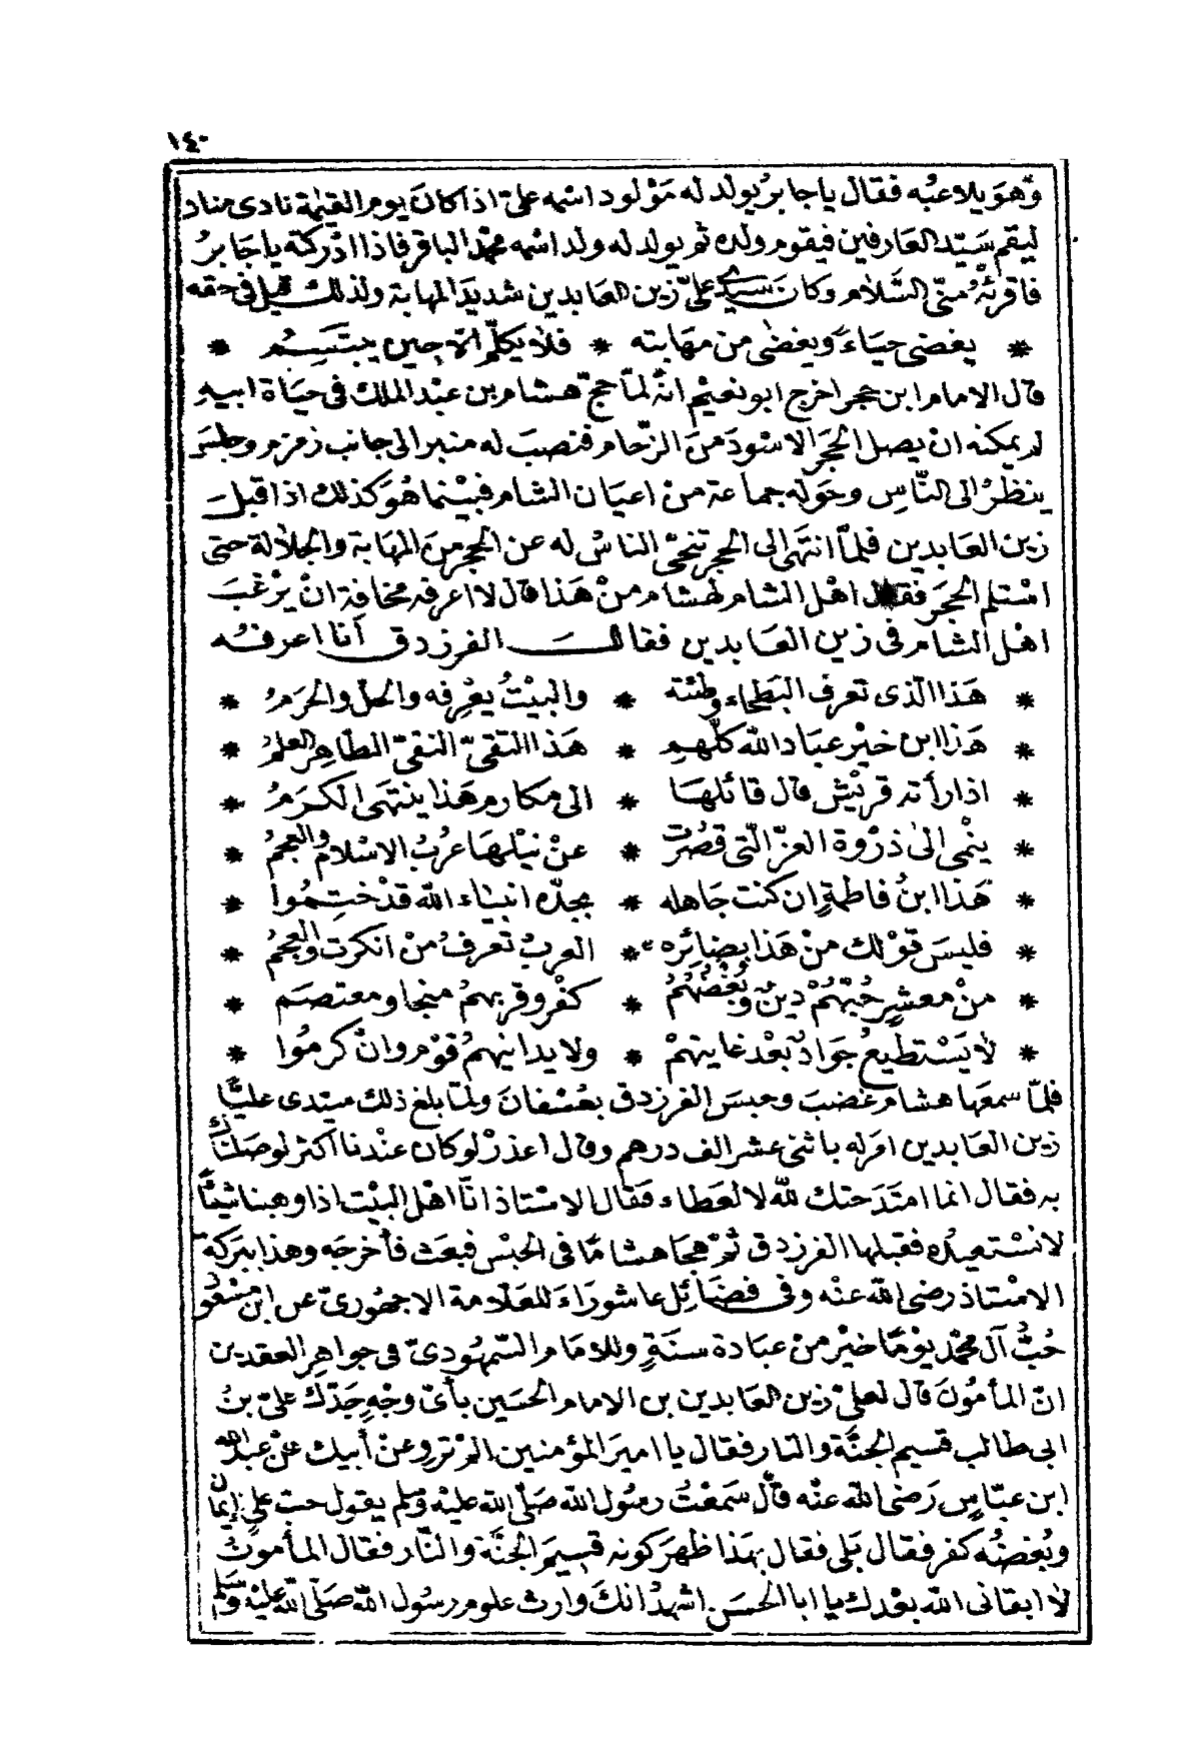 ١٤٠
وهو يلاعبه فقال يا جابر يولد له مولود اسمه علىّ اذا كان يوم القيٰمة نادى مناد
ليقم سيّد العارفين فيقوم ولده ثم يولد له ولد اسمه محمّد الباقر فاذا ادْركته يا جابر
فاقرئه منّى السّلام وكان سيدى علىّ زين العابدين شديد المهابة ولذلك قيل فى حقه
* يغضى حياءً ويغضى من مهابته * فلا يكلّم الّا حين يبتسم *
قال الامام ابن حجر اخرج ابو نعيم انّه لمّا حجّ هشام بن عبد الملك فى حياة ابيه
لم يمكنه ان يصل الحجر الاسود من الزّحام فنصب له منبر الى جانب زمزم وجلس
ينظر الى النّاس وحوله جماعة من اعيان الشام فبينما هو كذلك اذ اقبل
زين العابدين فلمّا انتهى الى الحجر تنحّى الناس له عن الحجر من المهابة والجلالة حتى
استلم الحجر فقال اهل الشام لهشام من هذا قال لا اعرفه مخافة ان يرغب
اهل الشام فى زين العابدين فقال الفرزدق أنا اعرفه
* هذا الّذى تعرف البطحاء وطئته * والبيتُ يعرفه والحلّ والحرمُ *
* هذا ابن خير عباد الله كلّهم * هذا التقىّ النقىّ الطّاهر العلمُ *
* اذا رأته قريش قال قائلها * الى مكارم هذا ينتهى الكرمُ *
* ينمى الى ذروة العزّ الّتى قصُرت * عن نيلها عربُ الاسلام والعجمُ *
* هذا ابنُ فاطمةٍ ان كنت جاهله * بجدّه انبياء الله قد ختموا *
* فليس قولك من هذا بضائره * العرب تعرفُ من انكرت والعجمُ *
* من معشرٍ حُبّهُمْ دينٌ وبُغضُهُمُ * كفر وقربهمُ منجا ومعتصم *
* لا يستطيعُ جوادٌ بعد غايتهمْ * ولا يدانيهمُ قوم وان كرموا *
فلمّا سمعها هشام غضب وحبس الفرزدق بعسفان ولمّا بلغ ذلك سيّدى عليًّا
زين العابدين امر له باثنى عشر الف درهم وقال اعذر لو كان عندنا اكثر لوصلناك
به فقال انما امتدحتك للّه لا لعطاء فقال الاستاذ انّا اهل البيت اذا وهبنا شيئًا
لا نستعيده فقبلها الفرزدق ثمّ هجا هشامًا فى الحبس فبعث فأخرجه وهذا ببركة
الاستاذ رضى الله عنه وفى فضائل عاشوراء للعلامة الاجهورىّ عن ابن مسعود
حُبُّ آل محمّد يومًا خير من عبادة سنةٍ وللامام السّمهودىّ فى جواهر العقدين
انّ المأمون قال لعلىّ زين العابدين بن الامام الحسين بأىّ وجهٍ جدّك علىّ بنُ
ابى طالب قسيم الجنّة والنار فقال يا امير المؤمنين الم ترو عن أبيك عن عبد الله
ابن عبّاسٍ رضى الله عنه قال سمعتُ رسول الله صلّى الله عليه وسلم يقول حب علىٍّ ايمان
وبُغضُه كفر فقال بلى فقال بهذا ظهر كونه قسيم الجنّة والنّار فقال المأمون
لا ابقانى الله بعدك يا ابا الحسن اشهدُ انك وارث علوم رسول الله صلّى الله عليه وسلم